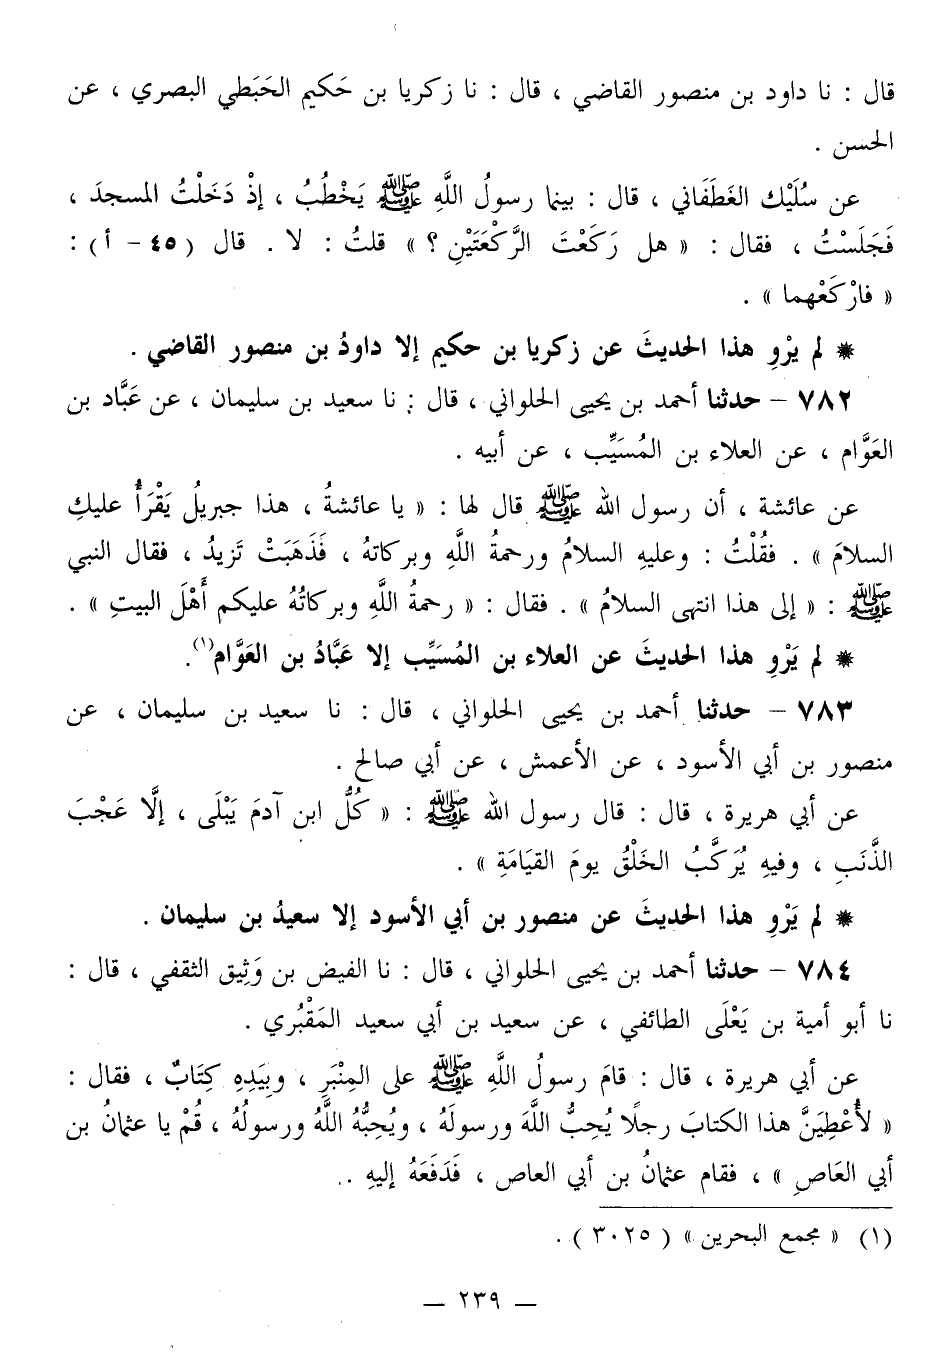 قال : نا داود بن منصور القاضي ، قال : نا زكريا بن حَكيم الحَبَطي البصري ، عن
الحسن .
عن سُلَيْك الغَطَفَاني ، قال : بينما رسولُ اللَّهِ ﷺ يَخْطُبُ ، إذْ دَخَلْتُ المسجدَ ،
فَجَلَسْتُ ، فقال : « هل رَكَعْتَ الرَّكْعَتَيْنِ ؟ » قلتُ : لا . قال ( ٤٥ - أ ) :
« فارْكَعْهما » .
* لم يرْوِ هذا الحديثَ عن زكريا بن حكيم إلا داودُ بن منصور القاضي .
٧٨٢ - حدثنا أحمد بن يحيى الحلواني ، قال : نا سعيد بن سليمان ، عن عَبَّاد بن
العَوَّام ، عن العلاء بن المُسَيِّب ، عن أبيه .
عن عائشة ، أن رسول الله ﷺ قال لها : « يا عائشةُ ، هذا جبريلُ يَقْرَأُ عليكِ
السلامَ » . فقُلْتُ : وعليهِ السلامُ ورحمةُ اللَّهِ وبركاتهُ ، فَذَهَبَتْ تَزيدُ ، فقال النبي
ﷺ : « إلى هذا انتهى السلامُ » . فقال : « رحمةُ اللَّهِ وبركاتُهُ عليكم أَهْلَ البيتِ » .
* لم يَرْوِ هذا الحديثَ عن العلاء بن المُسَيِّب إلا عَبَّادُ بن العَوَّام(١).
٧٨٣ - حدثنا أحمد بن يحيى الحلواني ، قال : نا سعيد بن سليمان ، عن
منصور بن أبي الأسود ، عن الأعمش ، عن أبي صالح .
عن أبي هريرة ، قال : قال رسول الله ﷺ : « كُلُّ ابن آدمَ يَبْلَى ، إلَّا عَجْبَ
الذَّنَبِ ، وفيهِ يُرَكَّبُ الخَلْقُ يومَ القيَامَةِ » .
* لم يَرْوِ هذا الحديثَ عن منصور بن أبي الأسود إلا سعيدُ بن سليمان .
٧٨٤ - حدثنا أحمد بن يحيى الحلواني ، قال : نا الفيض بن وَثِيق الثقفي ، قال :
نا أبو أمية بن يَعْلَى الطائفي ، عن سعيد بن أبي سعيد المَقْبُري .
عن أبي هريرة ، قال : قامَ رسولُ اللَّهِ ﷺ على المِنْبَرِ ، وبِيَدِهِ كِتَابٌ ، فقال :
« لأُعْطِيَنَّ هذا الكتابَ رجلًا يُحِبُّ اللَّهَ ورسولَهُ ، ويُحِبُّهُ اللَّهُ ورسولُهُ ، قُمْ يا عثمانُ بن
أبي العَاصِ » ، فقام عثمانُ بن أبي العاص ، فَدَفَعَهُ إليهِ ..
(١) « مجمع البحرين » ( ٣٠٢٥ ) .
— ٢٣٩ —